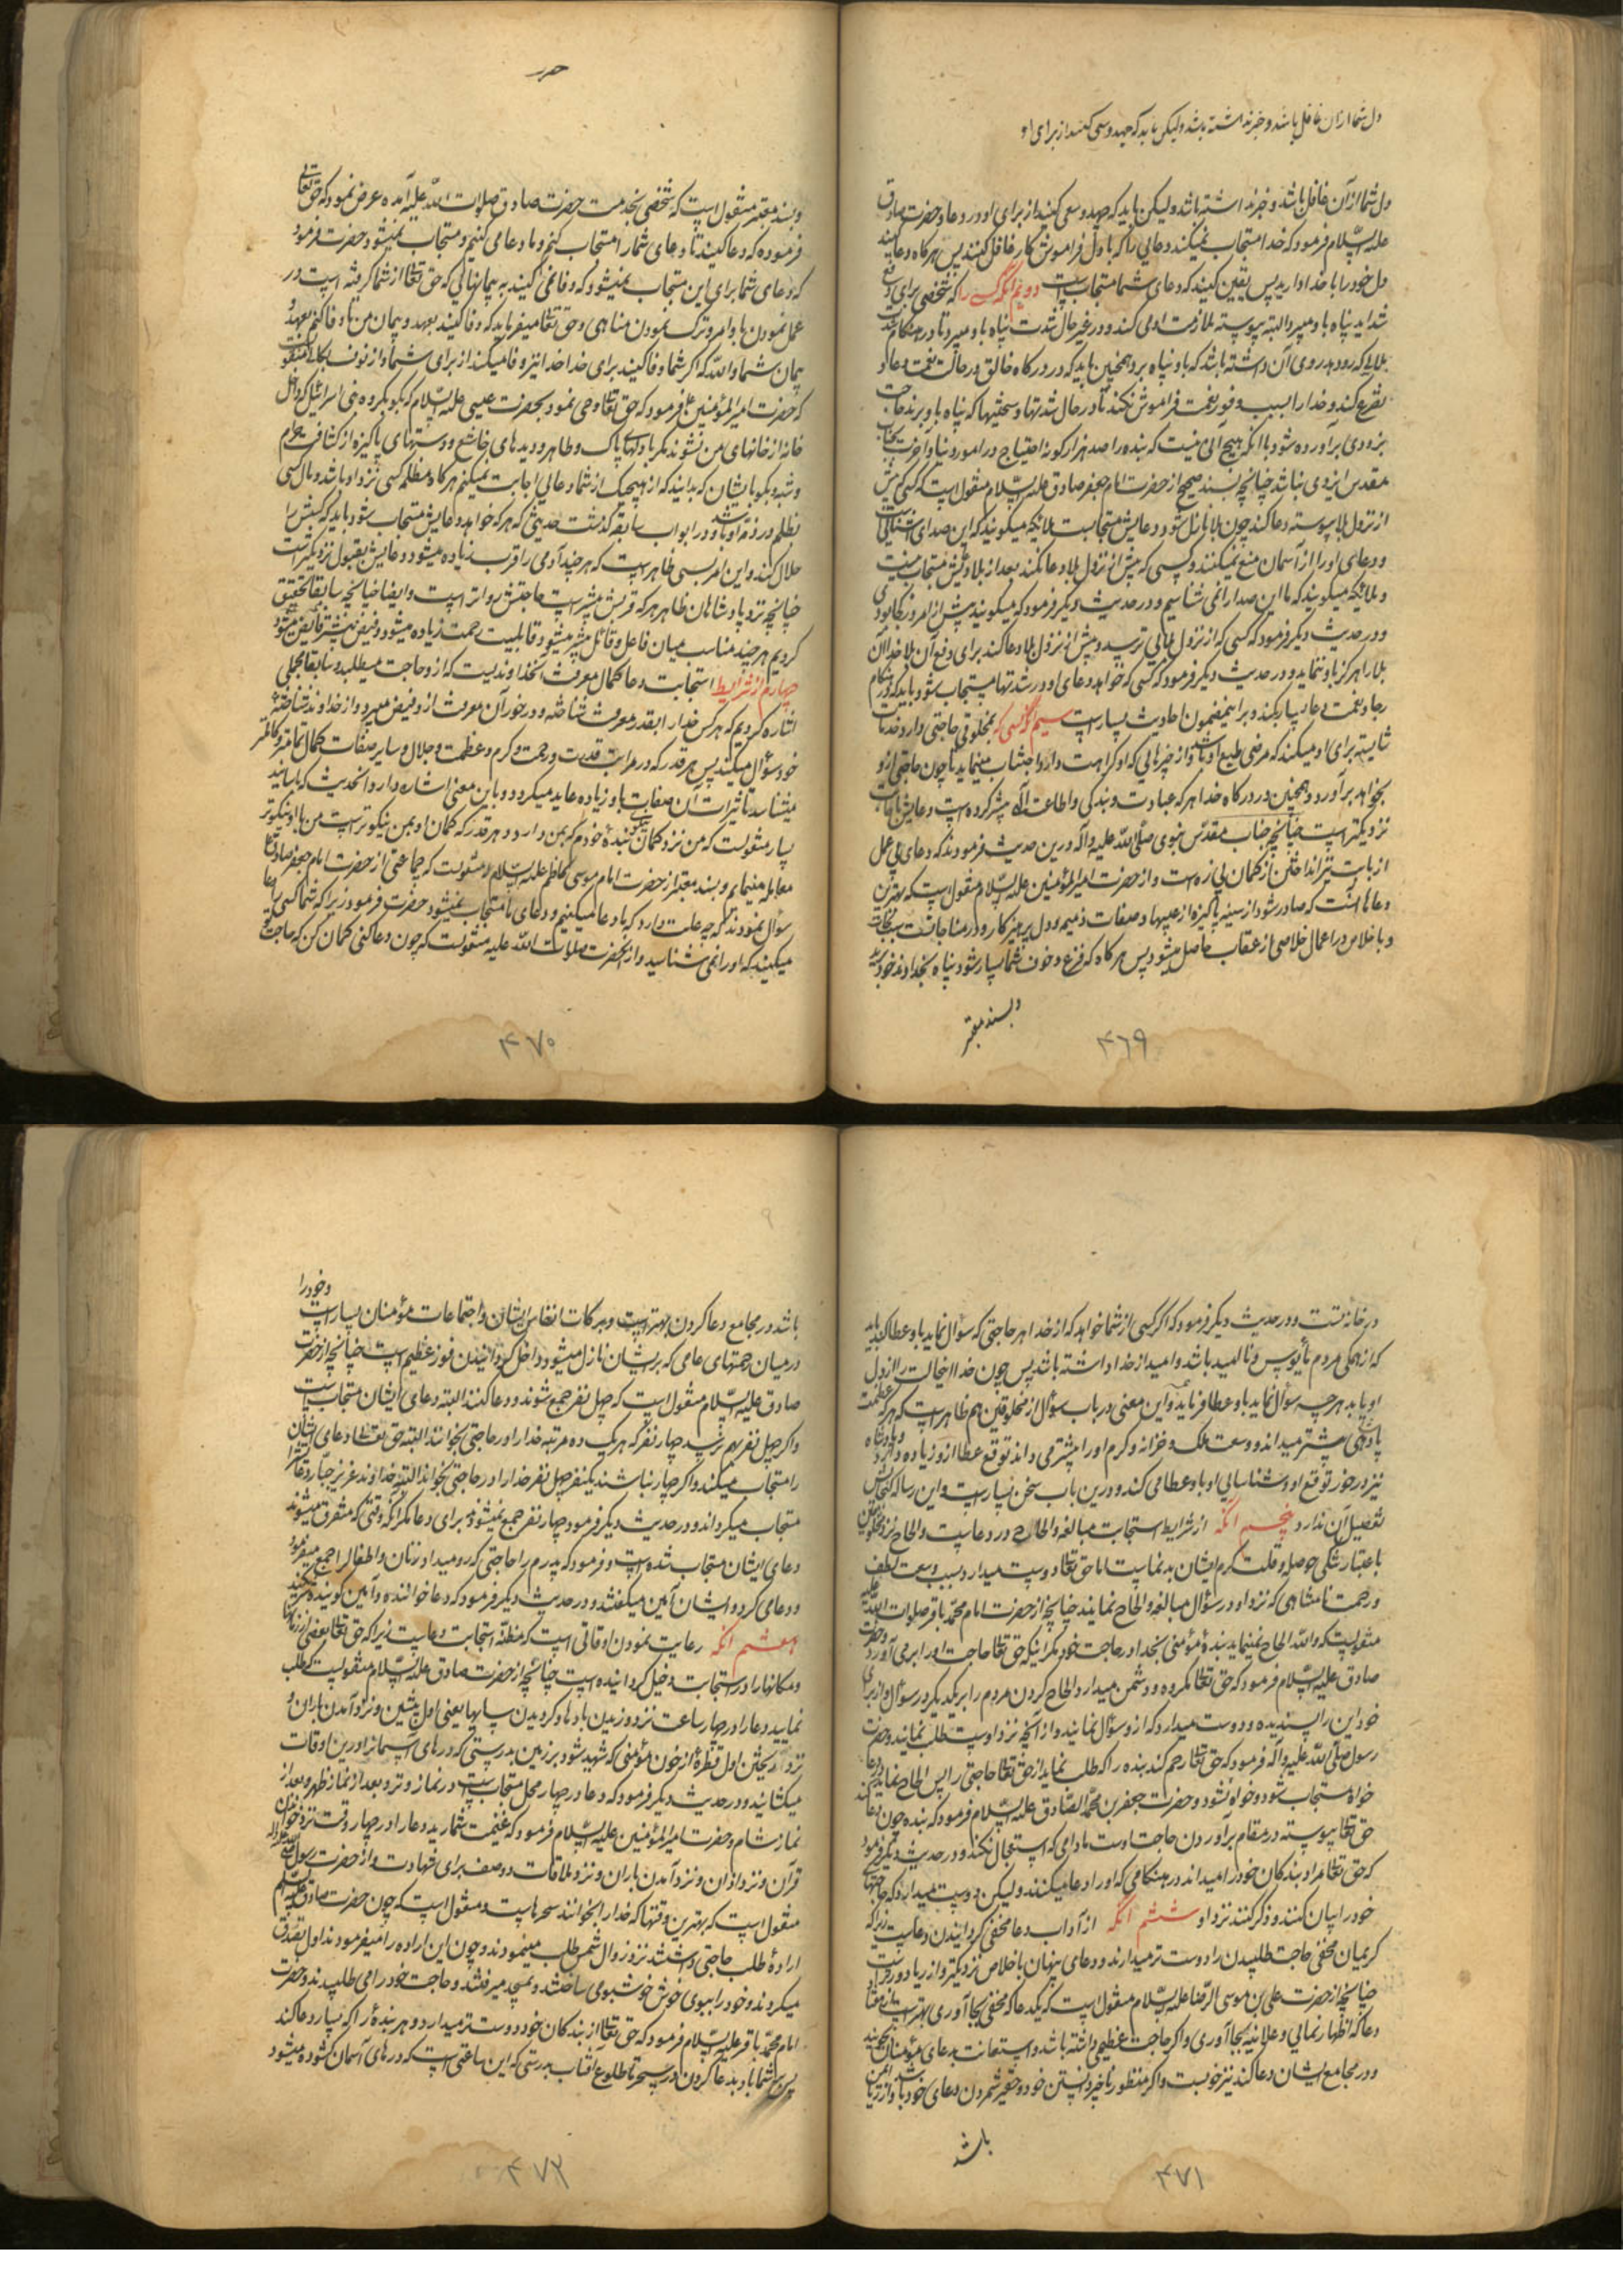 دل شما ازان غافل باشد و خبر نداشته باشد ولیکن باید که جهد و سعی کنید از برای او
دل شما از آن غافل باشد و خبر نداشته باشد ولیکن باید که جهد و سعی کنید از برای او در دعا و حضرت صادق
علیه السّلام فرمود که خدا مستجاب نمیکند دعایی را که با دل فراموش کار غافل کنند پس هرگاه دعا کنید
دل خود را با خدا دارید پس یقین کنید که دعای شما مستجاب است دویم آنکه کسی را که شخصی برای دفع
شداید پناه باو میبرد البته پیوسته ملازمت او می کند و در غیر حال شدت پناه باو میبرد تا در هنگام شدت
بلایا که رود بدو روی آن داشته باشد که باو پناه برد همچنین باید که در درگاه خالق در حالت نعمت دعا و
تضرع کند و خدا را بسبب وفور نعمت فراموش نکند تا در حال شدتها و سختیها که پناه باو برند حاجت
بزودی برآورده شود با آنکه هیچ آنی نیست که بنده را صد هزار گونه احتیاج در امور دنیا و آخرت بجناب
مقدس ایزدی نباشد چنانچه بسند صحیح از حضرت امام جعفر صادق علیه السّلام منقول است که کسی که پیش
از نزول بلا پیوسته دعا کند چون بلا نازل شود دعایش مستجابست ملائکه میگویند که این صدای آشنائیست
و دعای او را از آسمان منع نمیکنند و کسی که پیش از نزول بلا دعا نکند بعد از بلا دعایش مستجاب نیست
و ملائکه میگویند که ما این صدا را نمی شناسیم و در حدیث دیگر فرمود که میگویند پیش از امروز کجا بودی
و در حدیث دیگر فرمود که کسی که از نزول بلائی ترسد و پیش از نزول بلا دعا کند برای دفع آن بلا خدا آن
بلا را هرگز باو ننماید و در حدیث دیگر فرمود که کسی که خواهد دعای او در شدتها مستجاب شود باید که در هنگام
رخا و نعمت دعا بسیار بکند و بر این مضمون احادیث بسیار است سیم کسی که بمخلوقی حاجتی دارد خدمات
شایسته برای او میکند که مرضی طبع او باشد و از چیزهایی که او کراهت دارد اجتناب مینماید تا چون حاجتی از او
بخواهد برآورد و همچنین در درگاه خدا هر که عبادت و بندگی و اطاعت او بیشتر کرده است دعایش باجابت
نزدیکتر است چنانچه جناب مقدّس نبوی صلّی اللّه علیه واله درین حدیث فرمودند که دعای بی عمل
از بابت تیر انداختن از کمان بی زه است و از حضرت امیرالمؤمنین علیه السّلام منقول است که بهترین
دعاها آنست که صادر شود از سینه پاکیزه از عیبها و صفات ذمیمه و دل پرهیزکار و در مناجات سبب نجات
و باخلاص در اعمال خلاصی از عقاب حاصل میشود پس هرگاه که فزع و خوف شما بسیار شود پناه بخداوند خود برید
و بسند معتبر
٤٦٩
و بسند معتبر منقول است که شخصی بخدمت حضرت صادق صلوات اللّه علیه آمده عرض نمود که حق تعالی
فرموده که دعا کنید تا دعای شما را مستجاب کنم و ما دعا می کنیم و مستجاب نمیشود حضرت فرمود
که دعای شما برای این مستجاب نمیشود که وفا نمی کنید به پیمانهایی که حق تعالی از شما گرفته است در
عمل نمودن باوامر و ترک نمودن مناهی و حق تعالی میفرماید که وفا کنید بعهد و پیمان من تا وفا کنم بعهد و
پیمان شما واللّه که اگر شما وفا کنید برای خدا خدا نیز وفا میکند از برای شما و از نوف بکالی منقولست
که حضرت امیرالمؤمنین فرمود که حق تعالی وحی نمود بحضرت عیسی علیه السّلام که بگو بگروه بنی اسرائیل که داخل
خانه از خانهای من نشوند مگر با دلهای پاک و طاهر و دیدهای خاشع و دستهای پاکیزه از کثافت حرام
و شبهه و بگو بایشان که بدانید که از هیچیک از شما دعایی اجابت نمیکنم هرگاه مظلمه کسی نزد او باشد و مال کسی
بظلم در ذمه او باشد و در ابواب سابقه گذشت حدیثی که هر که خواهد دعایش مستجاب شود باید که کسبش را
حلال کند و این امر بسی ظاهر است که هر چند آدمی را قرب زیاده میشود دعایش بقبول نزدیکتر است
چنانچه نزد پادشاهان ظاهر هر که قربش بیشتر است حاجتش رواتر است و ایضا چنانچه سابقا تحقیق
کردیم هر چند مناسبت میان فاعل و قابل بیشتر میشود قابلیت رحمت زیاده میشود و فیض بیشتر فایض میشود
چهارم از شرایط استجابت دعا کمال معرفت آنخداوندیست که از او حاجت میطلبد و سابقا مجملی
اشاره کردیم که هر کس خدا را بقدر معرفت شناخته و در خور آن معرفت از او فیض میبرد و از خداوند شناخته
خود سؤال میکند پس هر قدر که در مراتب قدرت و رحمت و کرم و عظمت و جلال و سایر صفات کمال او را کاملتر
میشناسد تاثیرات آن صفات باو زیاده عاید میگردد و باین معنی اشاره دارد آنحدیث که باسانید
بسیار منقولست که من نزد گمان بنده خودم که بمن دارد و هر قدر که گمان او بمن نیکوتر است من با او نیکوتر
معامله مینمایم و بسند معتبر از حضرت امام موسی کاظم علیه السّلام منقولست که جماعتی از حضرت امام جعفر صادق
سؤال نمودند که چه علت دارد که ما دعا میکنیم و دعای ما مستجاب نمیشود حضرت فرمود زیرا که شما کسی را دعا
میکنید که او را نمی شناسید و از آنحضرت صلوات اللّه علیه منقولست که چون دعا کنی گمان کن که حاجت تو
٤٧٠
در خانه تست و در حدیث دیگر فرمود که اگر کسی از شما خواهد که از خدا هر حاجتی که سؤال نماید باو عطا کند باید
که از همگی مردم مأیوس و ناامید باشد و امید از خدا داشته باشد پس چون خدا اینحالت را از دل
او یابد هر چه سؤال نماید باو عطا فرماید و این معنی در باب سؤال از مخلوقین هم ظاهر است که هر که عظمت
پادشاهی بیشتر میداند و وسعت ملک و خزانه و کرم او را بیشتر می داند توقع عطا از او زیاده دارد و پادشاه
نیز در خور توقع او و شناسایی او باو عطا می کند و درین باب سخن بسیار است و این رساله گنجایش
تفصیل آن ندارد پنجم آنکه از شرایط استجابت مبالغه و الحاح در دعاست و الحاح نزد مخلوقین
باعتبار تنگی حوصله و قلت کرم ایشان بدنماست اما حق تعالی دوست میدارد بسبب وسعت لطف
و رحمت نامتناهی که نزد او در سؤال مبالغه و الحاح نمایند چنانچه از حضرت امام محمّد باقر صلوات اللّه علیه
منقولست که واللّه الحاح نمینماید بنده مؤمنی بخدا در حاجت خود مگر اینکه حق تعالی حاجت او را برمی آورد و حضرت
صادق علیه السّلام فرمود که حق تعالی مکروه و دشمن میدارد الحاح کردن مردم را بر یکدیگر در سؤال و از برای
خود این را پسندیده و دوست میدارد که از او سؤال نمایند و از آنچه نزد اوست طلب نمایند و حضرت
رسول صلّی اللّه علیه واله فرمود که حق تعالی رحم کند بنده را که طلب نماید از حق تعالی حاجتی را پس الحاح نماید در دعا
خواه مستجاب شود و خواه نشود و حضرت جعفر بن محمّد الصّادق علیه السّلام فرمود که بنده چون دعا کند
حق تعالی پیوسته در مقام برآوردن حاجت اوست مادامی که استعجال نکند و در حدیث دیگر فرمود
که حق تعالی مراد بندگان خود را میداند در هنگامی که او را دعا میکنند ولیکن دوست میدارد که حاجتهای
خود را بیان کنند و ذکر کنند نزد او ششم آنکه از آداب دعا مخفی گردانیدن دعاست زیرا که
کریمان مخفی حاجت طلبیدن را دوست تر میدارند و دعای پنهان باخلاص نزدیکتر و از ریا دورتر است
چنانچه از حضرت علی بن موسی الرّضا علیه السّلام منقول است که یک دعا که مخفی بجا آوری بهتر است از هفتاد
دعا که اظهار نمائی و علانیه بجا آوری و اگر حاجت عظیمی داشته باشد و استعانت بدعای مؤمنان بجوید
و در مجامع ایشان دعا کند نیز خوبست و اگر منظور ناچیز دانستن خود و حقیر شمردن دعای خود باشد و از ریا ایمن
باشد
٤٧١
و خود را
باشد در مجامع دعا کردن بهتر است و برکات انفاس ایشان و اجتماعات مؤمنان بسیار است
در میان رحمتهای عامی که بر ایشان نازل میشود داخل گردانیدن فوز عظیم است چنانچه از حضرت
صادق علیه السّلام منقول است که چهل نفر جمع شوند و دعا کنند البته دعای ایشان مستجاب است
و اگر چهل نفر بهم نرسد چهار نفر که هر یک ده مرتبه خدا را در حاجتی بخوانند البته حق تعالی دعای ایشان
را مستجاب میکند و اگر چهار نباشند یکنفر چهل نفر خدا را در حاجتی بخواند البته خداوند عزیز جبّار دعا را
مستجاب میگرداند و در حدیث دیگر فرمود چهار نفر جمع نمیشوند برای دعا مگر آنکه وقتی که متفرق میشوند
دعای ایشان مستجاب شده است و فرمود که پدرم را حاجتی که رو میداد زنان و اطفال را جمع میفرمود
و دعا می کرد و ایشان آمین میگفتند و در حدیث دیگر فرمود که دعا خواننده و آمین گوینده شریکند
هفتم آنکه رعایت نمودن اوقاتی است که مظنه استجابت دعاست زیرا که حق تعالی بعضی از زمانها
و مکانها را در استجابت دخیل گردانیده است چنانچه از حضرت صادق علیه السّلام منقولست که طلب
نمایید دعا را در چهار ساعت نزد وزیدن بادها و گردیدن سایها یعنی اول پیشین و نزد آمدن باران و
نزد ریختن اول قطره از خون مؤمنی که شهید شود بر زمین بدرستی که درهای آسمان را درین اوقات
میگشایند و در حدیث دیگر فرمود که دعا در چهار محل مستجاب است در نماز وتر و بعد از نماز ظهر و بعد از
نماز شام و حضرت امیرالمؤمنین علیه السّلام فرمود که غنیمت شمارید دعا را در چهار وقت نزد خواندن
قرآن و نزد اذان و نزد آمدن باران و نزد ملاقات دو صف برای شهادت و از حضرت رسول صلی اللّه علیه واله
منقول است که بهترین وقتها که خدا را بخوانند سحرهاست و منقول است که چون حضرت صادق علیه السّلم
اراده طلب حاجتی داشتند نزد زوال شمس طلب مینمودند و چون این اراده را میفرمودند اول تصدق
میکردند و خود را ببوی خوش خوشبو می ساختند و بمسجد میرفتند و حاجت خود را می طلبیدند و حضرت
امام محمّد باقر علیه السّلام فرمود که حق تعالی از بندگان خود دوست تر میدارد و هر بنده را که بسیار دعا کند
پس بر شما باد بدعا کردن در سحر تا طلوع آفتاب بدرستی که این ساعتی است که درهای آسمان گشوده میشود